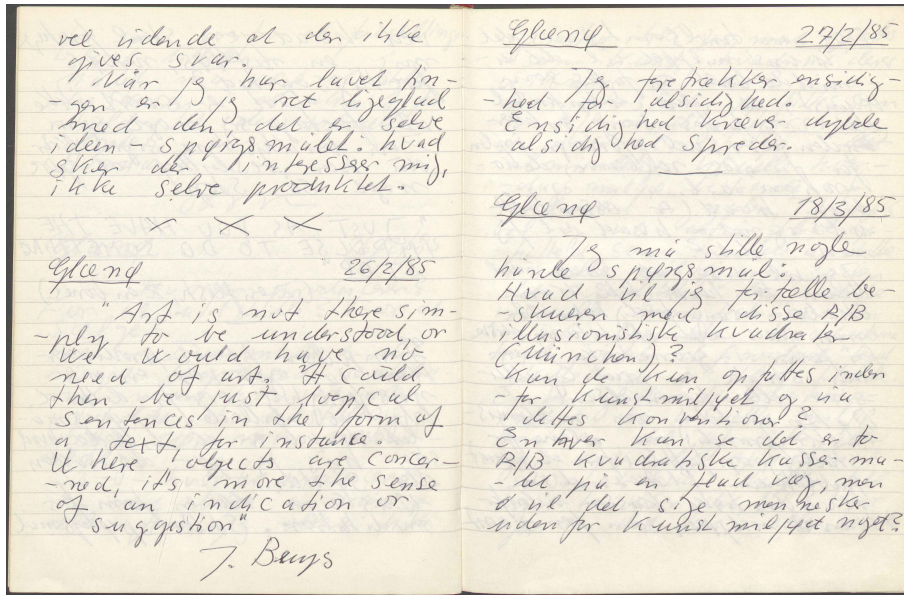 vel vidende at der ikke
gives svar.
Når jeg har lavet tin-
-gen er jeg ret ligeglad
med den, det er selve
ideen - spørgsmålet: hvad
sker der, interesserer mig,
ikke selve produktet.
x x x
Glænø 26/2/85
"Art is not there sim-
-ply to be understood, or
we would have no
need of art. It could
then be just logical
sentences in the form of
a text for instance.
Where objects are concer-
-ned, it's more the sense
of an indication or
suggestion"
J. Beuys
Glænø 27/2/85
Jeg foretrækker ensidig-
-hed for alsidighed.
Ensidighed kræver dybde
alsidighed spreder.
Glænø 18/3/85
Jeg må stille nogle
hårde spørgsmål:
Hvad vil jeg fortælle be-
-skueren med disse R/B
illusionistiske kvadrater
(München)?
Kan de kun opfattes inden
-for kunstmiljøet og via
dettes konventioner?
Enhver kan se det er to
R/B kvadratiske kasser ma-
-let på en flad væg, men
vil det sige mennesker
udenfor kunstmiljøet noget?